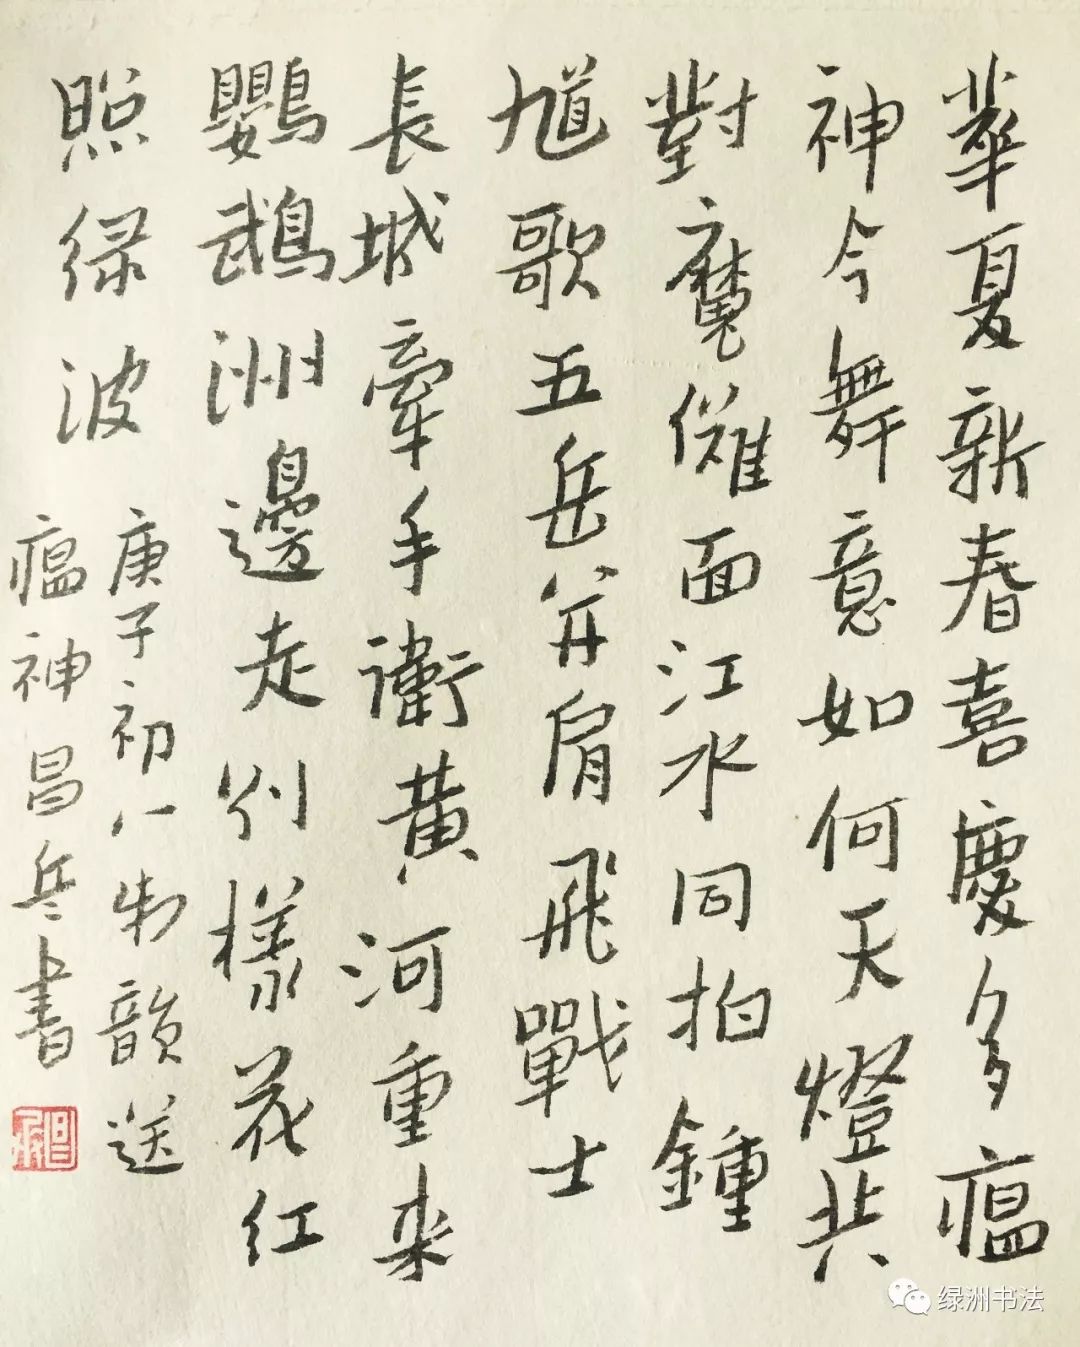 華夏新春喜慶多瘟
神今舞意如何天燈共
對魔儺面江水同拍鍾
馗歌五岳并肩飛戰士
長城牽手衛黃河重来
鸚鵡洲邊走別樣花红
照绿波
庚子初八制韻送
瘟神昌兵書
绿洲书法